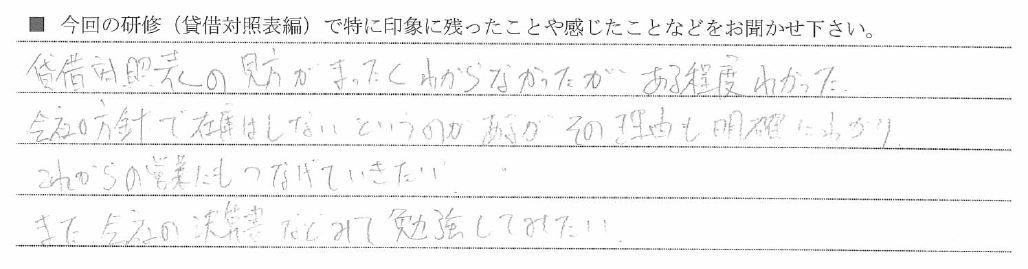 ■ 今回の研修（貸借対照表編）で特に印象に残ったことや感じたことなどをお聞かせ下さい。
貸借対照表の見方がまったくわからなかったが ある程度わかった.
会社の方針で在庫はしないというのがあるが その理由も明確にわかり
これからの営業にもつなげていきたい.
また 会社の決算書などみて勉強してみたい.